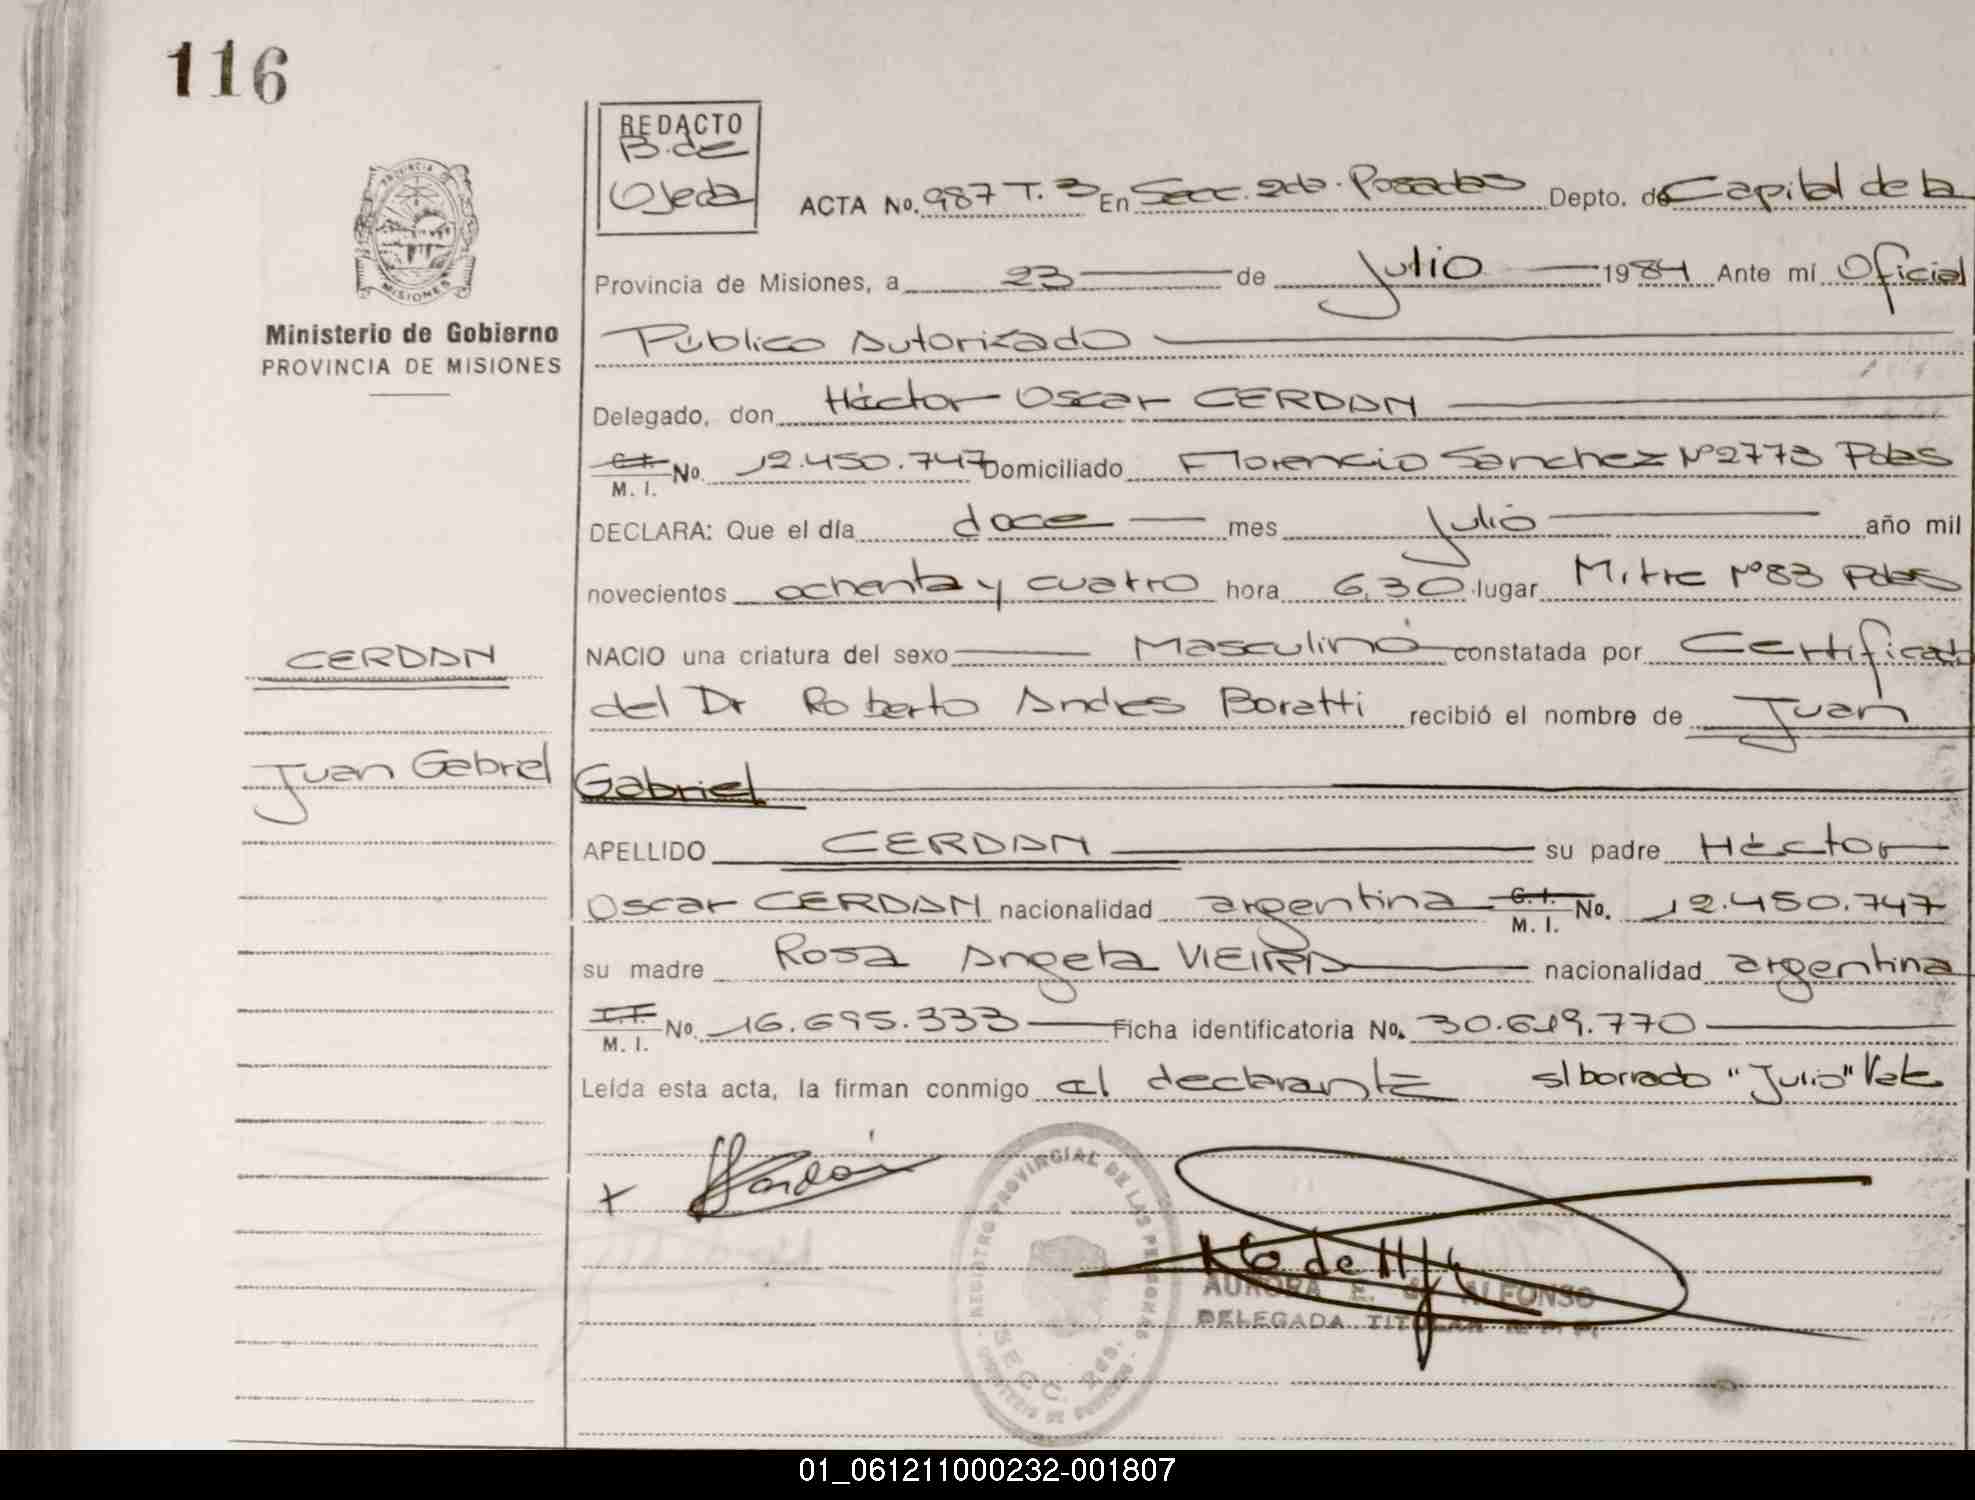 116
REDACTO
B. de
Ojeda
PROVINCIA DE
MISIONES
Ministerio de Gobierno
PROVINCIA DE MISIONES
ACTA No. 987 T. 3 En Secc. 2da. Posadas Depto. de Capital de la
Provincia de Misiones, a 23 de Julio 1984 Ante mí Oficial
Público Autorizado
Delegado, don Héctor Oscar CERDAN
C.I. M. I. No. 12.450.747 Domiciliado Florencio Sanchez Nº 2773 Pdas
DECLARA: Que el día doce mes Julio año mil
novecientos ochenta y cuatro hora 6,30 lugar Mitre Nº 83 Pdas
NACIO una criatura del sexo Masculino constatada por Certificado
del Dr Roberto Andres Boratti recibió el nombre de Juan
Gabriel
CERDAN
Juan Gabriel
APELLIDO CERDAN su padre Héctor
Oscar CERDAN nacionalidad argentina C.I. M. I. No. 12.450.747
su madre Rosa Angela VIEIRA nacionalidad argentina
M. I. No. 16.695.333 Ficha identificatoria No. 30.619.770
Leída esta acta, la firman conmigo el declarante s/borrado "Julio" Vale
REGISTRO PROVINCIAL DE LAS PERSONAS
SECC. 2da.
AURORA E. de ALFONSO
DELEGADA TITULAR R. P. P.
01_061211000232-001807